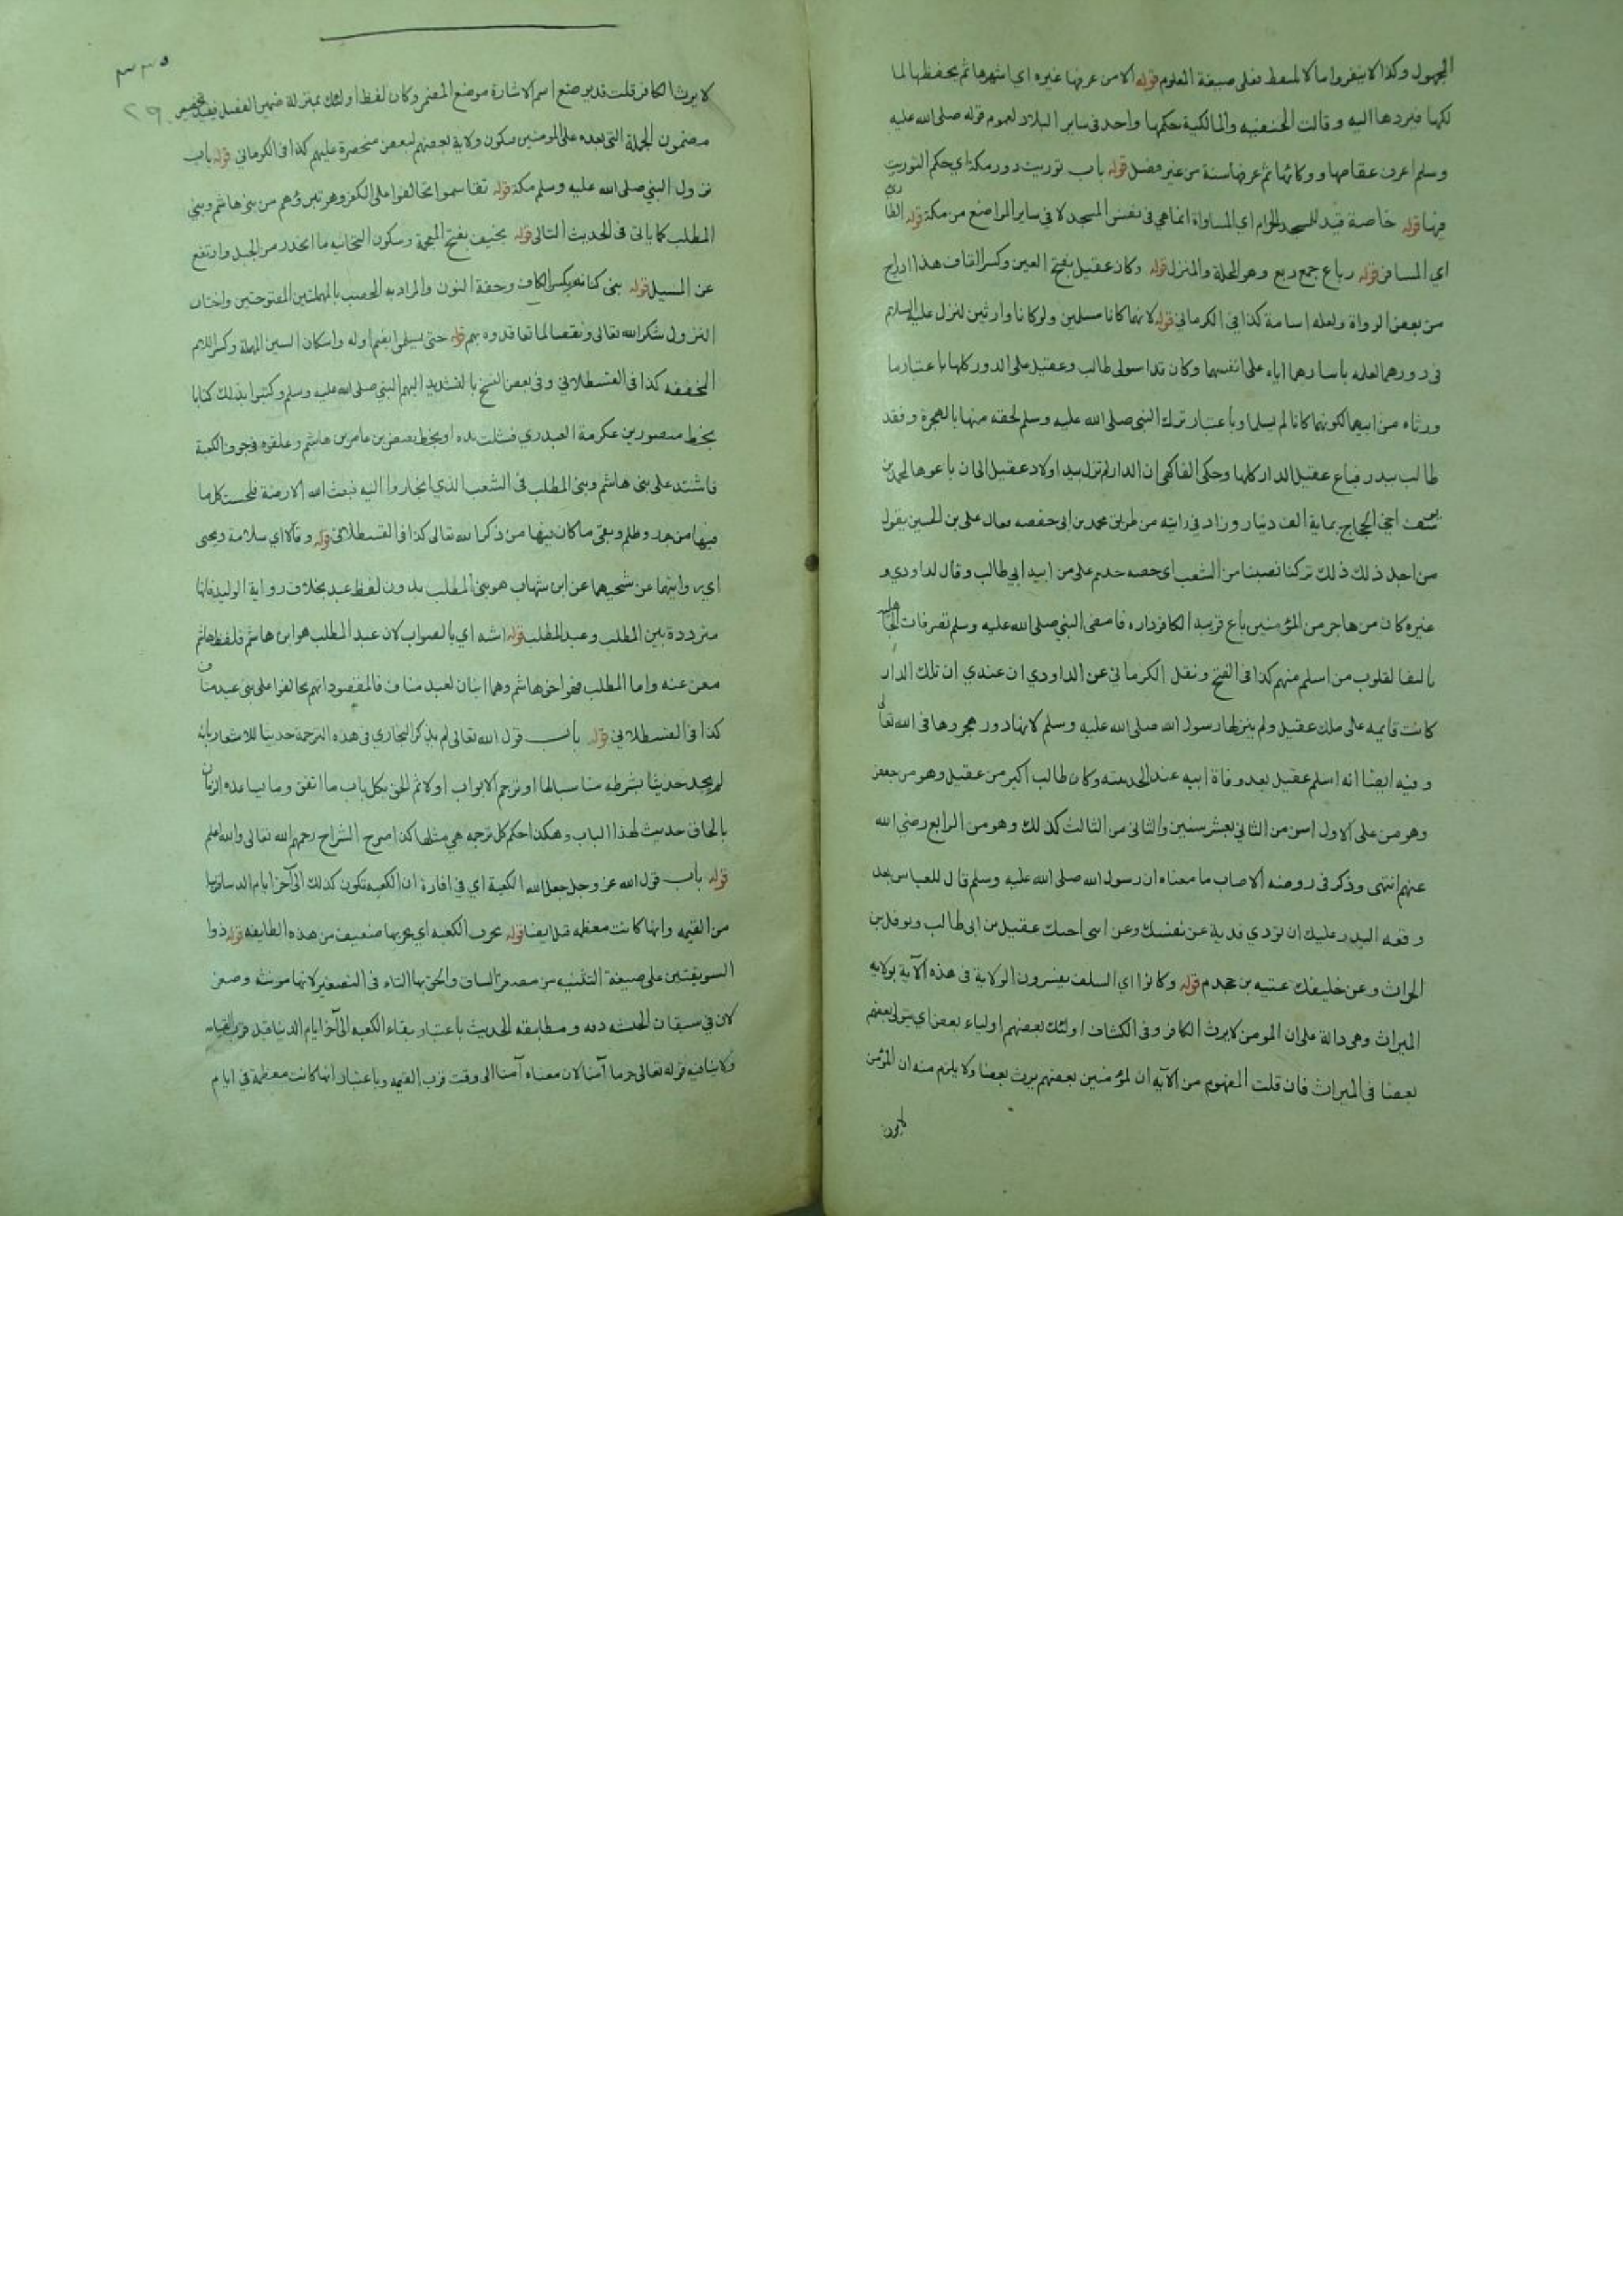 المجهول وكذا لا ينفروا ما لا لمسقط فعلى صيغة المعلوم قوله الا من عرفها غيره اي اشهرها ثم يحفظها لما
لكها فيردها اليه وقالت الحنفيه والمالكية حكمها واحد في ساير البلاد لعموم قوله صلى الله عليه
وسلم اعرف عقاصها ووكائها ثم عرفها سنة من غير فضل قوله باب توريث دور مكة اي حكم التوريث
فيها قوله خاصة قيد للمسجد الحرام اي المساواة انما هي في نفس المسجد لا في ساير المواضع من مكة قوله الطاري
اي المسافر قوله رباع جمع ربع وهو المحلة والمنزل قوله وكان عقيل بفتح العين وكسر القاف هذا ادراج
من بعض الرواة ولعله اسامة كذا في الكرماني قوله لانهما كانا مسلمين ولو كانا وارثين لنزل عليه السلام
في دورهما لعله باسارهما اياه على انفسهما وكان قد استولى طالب وعقيل على الدور كلها باعتبار ما
ورثاه من ابيهما لكونهما كانا لم يسلما وباعتبار ترك النبي صلى الله عليه وسلم لحقه منها بالهجرة وفقد
طالب ببدر فباع عقيل الدار كلها وحكى الفاكهي ان الدار لم تزل بيد اولاد عقيل الى ان باعوها لمحمد بن
يوسف اخي الحجاج بماية الف دينار وزاد في رايته من طريق محمد بن ابي حفصه فكان على بن الحسين يقول
من اجل ذلك ذلك تركنا نصيبنا من الشعب اي حصه جدهم علي من ابيه ابي طالب وقال الداودي و
غيره كان من هاجر من المؤمنين باع قريبه الكافر داره فامضى النبي صلى الله عليه وسلم تصرفات الجاهلية
تاليفا لقلوب من اسلم منهم كذا في الفتح ونقل الكرماني عن الداودي ان عندي ان تلك الدار
كانت قايمه على ملك عقيل ولم ينزلها رسول الله صلى الله عليه وسلم لانها دور هجروها في الله تعالى
وفيه ايضا انه اسلم عقيل بعد وفاة ابيه عند الحديبيه وكان طالب اكبر من عقيل وهو من جعفر
وهو من علي الاول اسن من الثاني بعشر سنين والثاني من الثالث كذلك وهو من الرابع رضي الله
عنهم انتهى وذكر في روضه الاصاب ما معناه ان رسول الله صلى الله عليه وسلم قال للعباس بعد
وقعه البدر عليك ان تودي فدية عن نفسك وعن ابني اخيك عقيل بن ابي طالب ونوفل بن
الحراث وعن خليفك عتبه بن جحدم قوله وكانوا اي السلف يفسرون الولاية في هذه الآية بولايه
الميراث وهي دالة على ان المومن لا يرث الكافر وفي الكشاف اولئك بعضهم اولياء بعض اي يتولى بعضهم
بعضا في الميراث فان قلت المفهوم من الآيه ان لمؤمنين بعضهم يرث بعضا ولا يلزم منه ان المؤمن
لا يرث
٣٣٥
٢٩٠
لا يرث الكافر قلت قد يوضع اسم الاشارة موضع المضمر وكان لفظ اولئك بمنزلة ضمير الفصل فيفيد تخصيص
مضمون الجملة التي بعده على المومنين فيكون ولاية بعضهم لبعض منحصرة عليهم كذا في الكرماني قوله باب
نزول النبي صلى الله عليه وسلم مكة قوله تقاسموا تحالفوا على الكفر وهو تبرؤهم من بني هاشم وبني
المطلب كما ياتي في الحديث التالي قوله بخيف بفتح المعجمة وسكون التحتانيه ما انحدر من الجبل وارتفع
عن المسيل قوله بني كنانه بكسر الكاف وخفة النون والمراد به المحصب بالمهملتين المفتوحتين واختار
النزول شكر الله تعالى ونقضا لما تعاقدوه بهم قوله حتى يسلموا بضم اوله واسكان السين المهملة وكسر اللام
المخففه كذا في القسطلاني وفي بعض النسخ بالتشديد اليهم النبي صلى الله عليه وسلم وكتبوا بذلك كتابا
بخط منصور بن عكرمة العبدري فشلت يده او بخط بغيض بن عامر بن هاشم وعلقوه في جوف الكعبة
فاشتد على بني هاشم وبني المطلب في الشعب الذي انحازوا اليه فبعث الله الارضة فلحست كل ما
فيها من جور وظلم وبقي ما كان فيها من ذكر الله تعالى كذا في القسطلاني قوله وقالا اي سلامة ويحيى
اي روايتهما عن شيخهما عن ابن شهاب هو بني المطلب بدون لفظ عبد بخلاف رواية الوليد فانها
مترددة بين المطلب وعبد المطلب قوله اشبه اي بالصواب لان عبد المطلب هو ابن هاشم فلفظ هاشم
مغن عنه واما المطلب فهو اخو هاشم وهما ابنان لعبد مناف فالمقصود انهم تحالفوا على بني عبد مناف
كذا في القسطلاني قوله باب قول الله تعالى لم يذكر البخاري في هذه الترجمة حديثا للاشعار بانه
لم يجد حديثا بشرطه مناسبا لها او ترجم الابواب اولا ثم الحق بكل باب ما اتفق وما يساعده الزمان
بالحاق حديث لهذا الباب وهكذا حكم كل ترجمه هي مثلها كذا صرح الشراح رحمهم الله تعالى والله اعلم
قوله باب قول الله عز وجل جعل الله الكعبة اي في افارة ان الكعبه تكون كذلك الى آخر ايام الد ساقربها
من القيمه وانها كانت معظمه قبل ايضا قوله يخرب الكعبه اي يخربها ضعيف من هذه الطايفه قوله ذوا
السويقتين على صيغة التثنيه من مصغر الساق والحق بها التاء في التصغير لانها مونثه وصغر
لان في سيقان الحبشه دقه ومطابقه الحديث باعتبار بقاء الكعبه الى آخر ايام الدنيا قبل قرب القيامه
ولا ينافيه قوله تعالى حرما آمنا لان معناه آمنا الى وقت قرب القيمه وباعتبار انها كانت معظمة في ايام